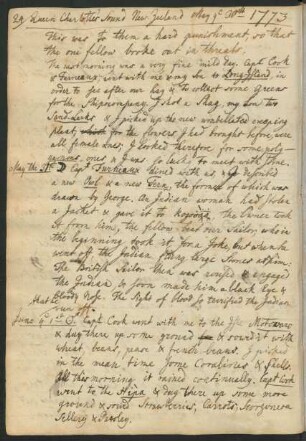 Q. Charlottes Sound New Zeeland May ye 30th 1773
This was to them a hard punishment, so that
the one fellow broke out in threats.
The next morning was a very fine mild day. Capt Cook
& Furneaux, went with me to Long Island, in
order to see after our hay & to collect some Greens
for the Ships company. I shot a Shag, my Son two
& I picked up the new umbellated creeping
plant, the flowers I had brought before, were
all female ones, I looked therefore for some
ones & was so lucky to meet with some.
May the 31st Capt Furneaux dined with us & I
a new Owl & a new the former of which was
drawn by George. An Indian woman had stolen
a Jacket & gave it to The Owner took
it from him, the fellow beat our Sailor, who in
the beginning took it for a Joke, but when he
went off, the Indian flung large Stones at him:
the British Sailor then was roused & engaged
the Indian, & soon made him a black Eye &
bloody Nose. The sight of blood so terrified the Indian
June ye 1st Capt Cook went with me to the Isle Motuara
& dug there up some ground & sowed it with
wheat, beans, pease & french beans. I picked
in the mean time some & Shells.
All this morning it rained continually. Capt Cook
went to the Hipa & dug there up some more
ground & sowed Strawberries, Carrots,
Sellery & Parsley.